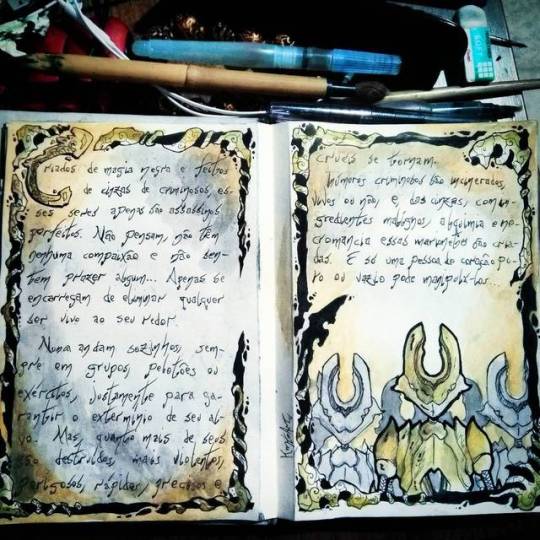 Criados de magia negra e feitos
de cinzas de criminosos, es-
ses seres apenas são assassinos
perfeitos. Não pensam, não têm
nenhuma compaixão e não sen-
tem prazer algum... Apenas se
encarregam de eliminar qualquer
ser vivo ao seu redor.
Nunca andam sozinhos, sem-
pre em grupos, pelotões ou
exércitos, justamente para ga-
rantir o extermínio de seu al-
vo. Mas, quanto mais de seus
são destruídos, mais violentos,
perigosos, rápidos, precisos e
cruéis se tornam.
Humanos criminosos são incinerados,
vivos ou não, e das cinzas, com in-
gredientes malignos, alquimia e ne-
cromancia essas são cria-
das. E só uma pessoa de coração pu-
ro ou vazio pode manipulá-los...